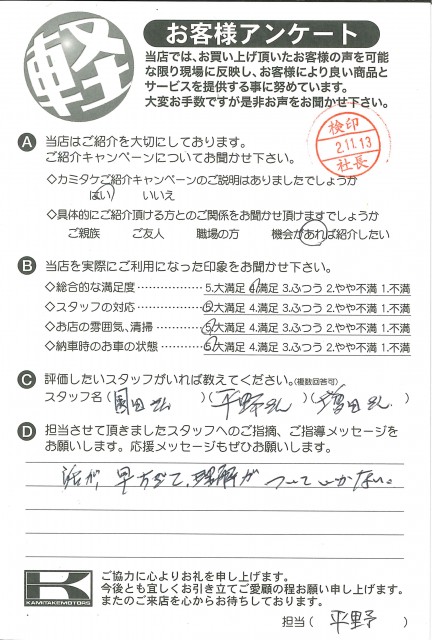 軽
お客様アンケート
当店では、お買い上げ頂いたお客様の声を可能
な限り現場に反映し、お客様により良い商品と
サービスを提供する事に努めています。
大変お手数ですが是非お声をお聞かせ下さい。
検印
2.11.13
社長
A 当店はご紹介を大切にしております。
ご紹介キャンペーンについてお聞かせ下さい。
◇カミタケご紹介キャンペーンのご説明はありましたでしょうか
はい いいえ
◇具体的にご紹介頂ける方とのご関係をお聞かせ頂けますでしょうか
ご親族 ご友人 職場の方 機会があれば紹介したい
B 当店を実際にご利用になった印象をお聞かせ下さい。
◇総合的な満足度 5.大満足 4.満足 3.ふつう 2.やや不満 1.不満
◇スタッフの対応 5.大満足 4.満足 3.ふつう 2.やや不満 1.不満
◇お店の雰囲気、清掃 5.大満足 4.満足 3.ふつう 2.やや不満 1.不満
◇納車時のお車の状態 5.大満足 4.満足 3.ふつう 2.やや不満 1.不満
C 評価したいスタッフがいれば教えてください。(複数回答可)
スタッフ名 (園田さん)(平野さん)(増田さん)
D 担当させて頂きましたスタッフへのご指摘、ご指導メッセージを
お願いします。応援メッセージもぜひお願いします。
話が、早すぎて、理解が ついていかない。
K
KAMITAKEMOTORS
ご協力に心よりお礼を申し上げます。
今後とも宜しくお引き立てご愛顧の程お願い申し上げます。
またのご来店を心からお待ちしております。
担当 ( 平野 )